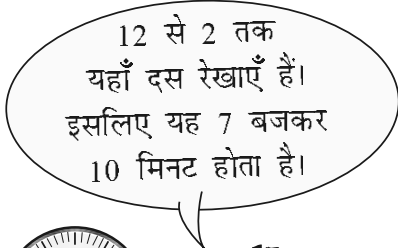 12 से 2 तक
यहाँ दस रेखाएँ हैं।
इसलिए यह 7 बजकर
10 मिनट होता है।